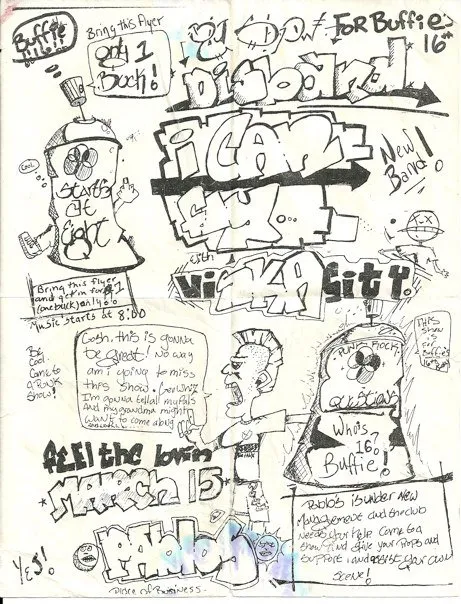 Buffie
Bring this Flyer
only 1
Buck!
For Buffie's
16th
Discband
i CANT
SAY...
New
Band!
with
ViSKASiTY.
cool.
Starts
at
Eight
Bring this flyer
and get in for $1
(one buck) only
Music starts at 8:00
Be
Cool.
Come to
a Punk
Show!
Gosh, this is gonna
be great! No way
am i going to miss
this show. Gee Whiz
I'm gonna tell all my pals
And my grandma might
want to come along
THIS
Show
is
for
Buffie's
16th
PUNK ROCK.
QUESTIONS
Who's
16?
Buffie!
feel the lovin
MARCH 15
Yes!
Pablos
Place of Business.
Pablo's is under new
Management and the club
needs your help. Come to a
Show and give your Props and
Support, and assist your own
scene!